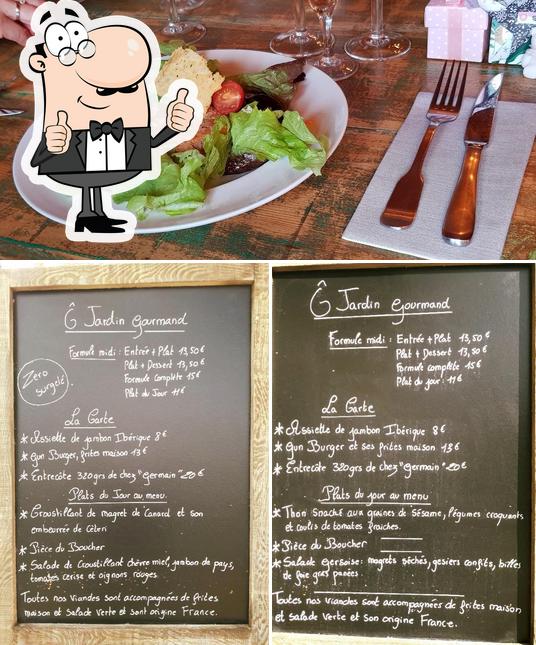 Ô Jardin Gourmand
Formule midi : Entrée + Plat 13,50 €
Plat + Dessert 13,50 €
Formule complète 15 €
Plat du Jour 11 €
Zéro
surgelé
La Carte
* Assiette de jambon Ibérique 8 €
* Gun Burger, frites maison 13 €
* Entrecôte 320grs de chez "Germain" 20 €
Plats du Jour au menu
* Croustillant de magret de Canard et son
embeurrée de Céleri
* Pièce du Boucher
* Salade de Croustillant chèvre miel, jambon de pays,
tomates cerise et oignons rouges
Toutes nos viandes sont accompagnées de frites
maison et Salade Verte et sont origine France.
Ô Jardin Gourmand
Formule midi : Entrée + Plat 13,50 €
Plat + Dessert 13,50 €
Formule complète 15 €
Plat du jour : 11 €
La Carte
* Assiette de jambon Ibérique 8 €
* Gun Burger et ses frites maison 13 €
* Entrecôte 320grs de chez "Germain" 20 €
Plats du jour au menu
* Thon Snacké aux graines de Sésame, légumes croquants
et coulis de tomates fraiches.
* Pièce du Boucher
* Salade Gersoise : magrets séchés, gesiers confits, billes
de foie gras panées
Toutes nos viandes sont accompagnées de frites maison
et Salade Verte et son origine France.